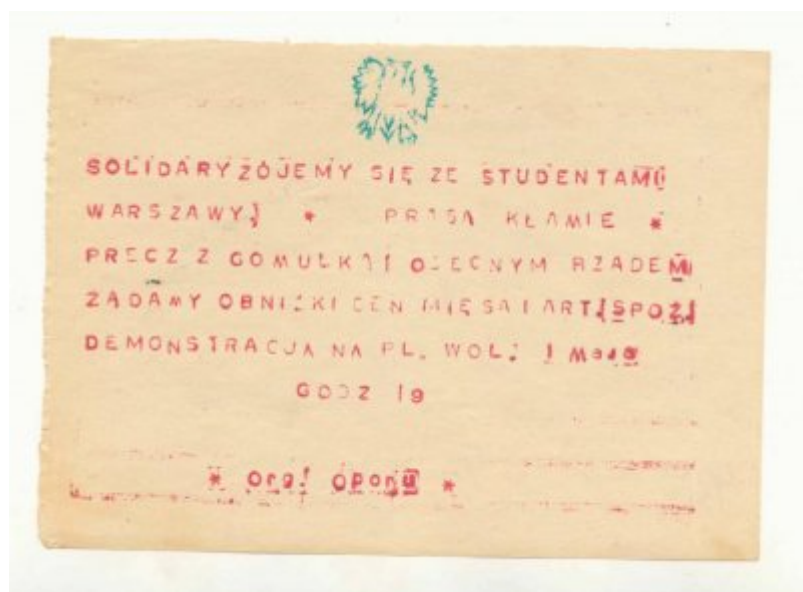 SOLIDARYZÓJEMY SIĘ ZE STUDENTAMI
WARSZAWY! * PRASA KŁAMIE *
PRECZ Z GOMUŁKĄ I OBECNYM RZĄDEM
ŻĄDAMY OBNIŻKI CEN MIĘSA I ART. SPOŻ.
DEMONSTRACJA NA PL. WOL. 1 Maja
GODZ 19
* org. oporu *